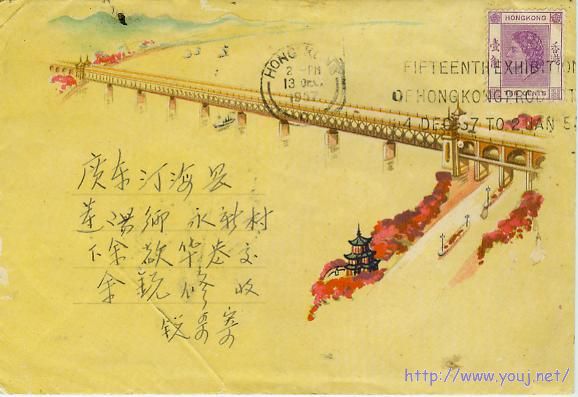 HONGKONG
壹角
香港
TEN CENTS
HONG KONG
2 - PM
13 DEC
1957
FIFTEENTH EXHIBITION
OF HONG KONG PRODUCTS
4 DEC 57 TO 2 JAN 5
广东汀海县
莲洪乡永新村
下余
余锐修收
锐寄
http://www.youj.net/